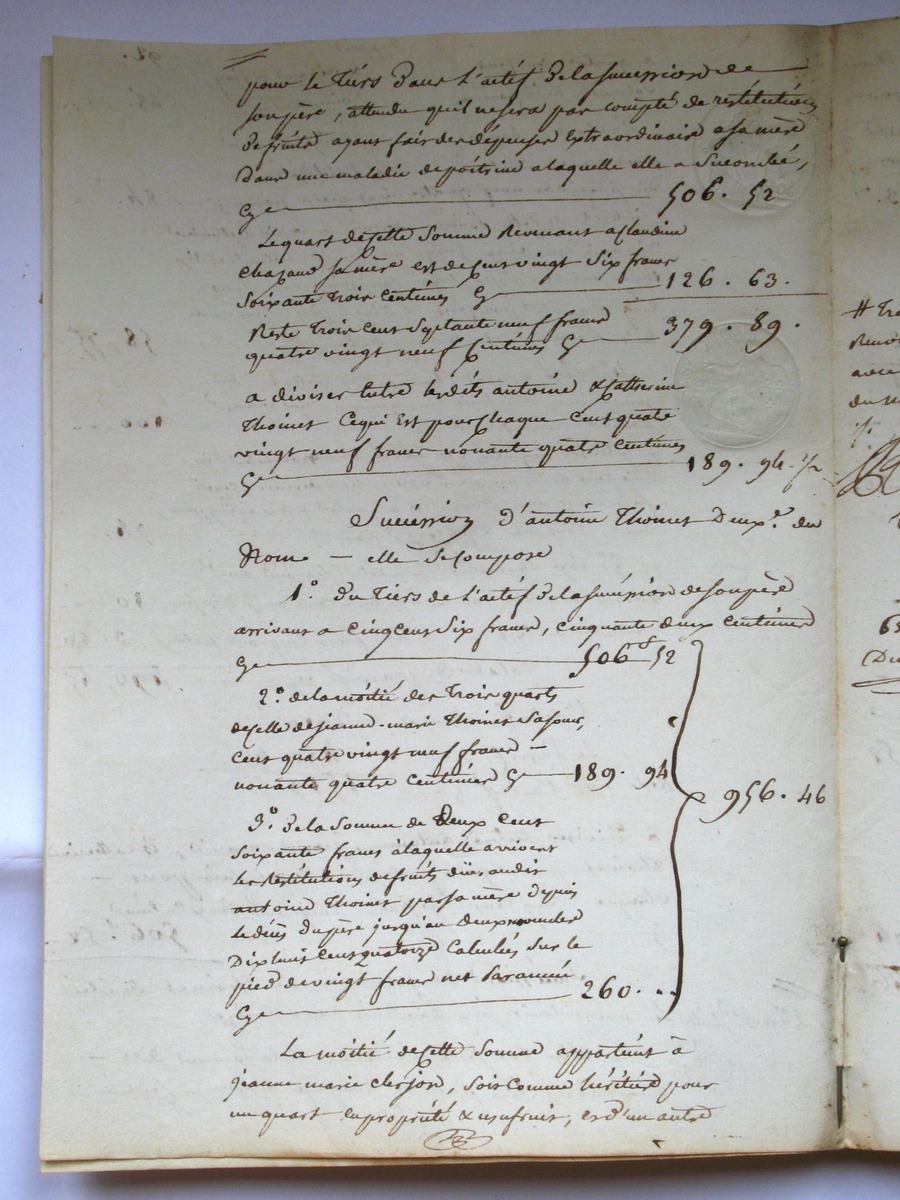 pour le tiers dans l'actif de la succession de
son père, attendu qu'il ne sera pas compté de restitutions
de fruits ayant fait des dépenses Extraordinaire a sa mère
dans une maladie de poitrine a laquelle elle a Sucombé,
Cy 506. 52
Le quart de Cette Somme Revenant a Claudine
Chazaud sa mère est de Cent vingt Six francs
Soixante trois Centimes Cy 126. 63.
Reste trois Cent Septante neuf francs
quatre vingt neuf Centimes Cy 379. 89.
a diviser Entre lesdits antoine & Catherine
Thoinet Ce qui Est pour Chaque Cent quatre
vingt neuf francs nonante quatre Centimes
Cy 189. 94. 1/2
Succéssion d'antoine Thoinet Deuxe. du
Nom — elle se Compose
1° Du tiers de l'actif de la succéssion de son père
arrivant a Cinq Cent Six francs, Cinquante deux Centimes
Cy 506 f 52
2° de la moitié des trois quarts
de Celle de jeanne-marie Thoinet Sa Soeur,
Cent quatre vingt neuf francs —
nonante quatre Centimes Cy 189. 94
956. 46
3° de la Somme de Deux Cent
Soixante francs à laquelle arrivent
les Réstitutions de fruits düés audit
antoine Thoinet par sa mère depuis
le décès du père jusqu'au deux novembre
Dix huit Cent quatorze Calculées Sur le
pied de vingt francs net Par année
Cy 260. ..
La moitié de Cette Somme appartient à
jeanne marie Clerjon, Soit Comme héritière pour
un quart En propriété & usufruit, et d'un autre
# tro
Reven
avec